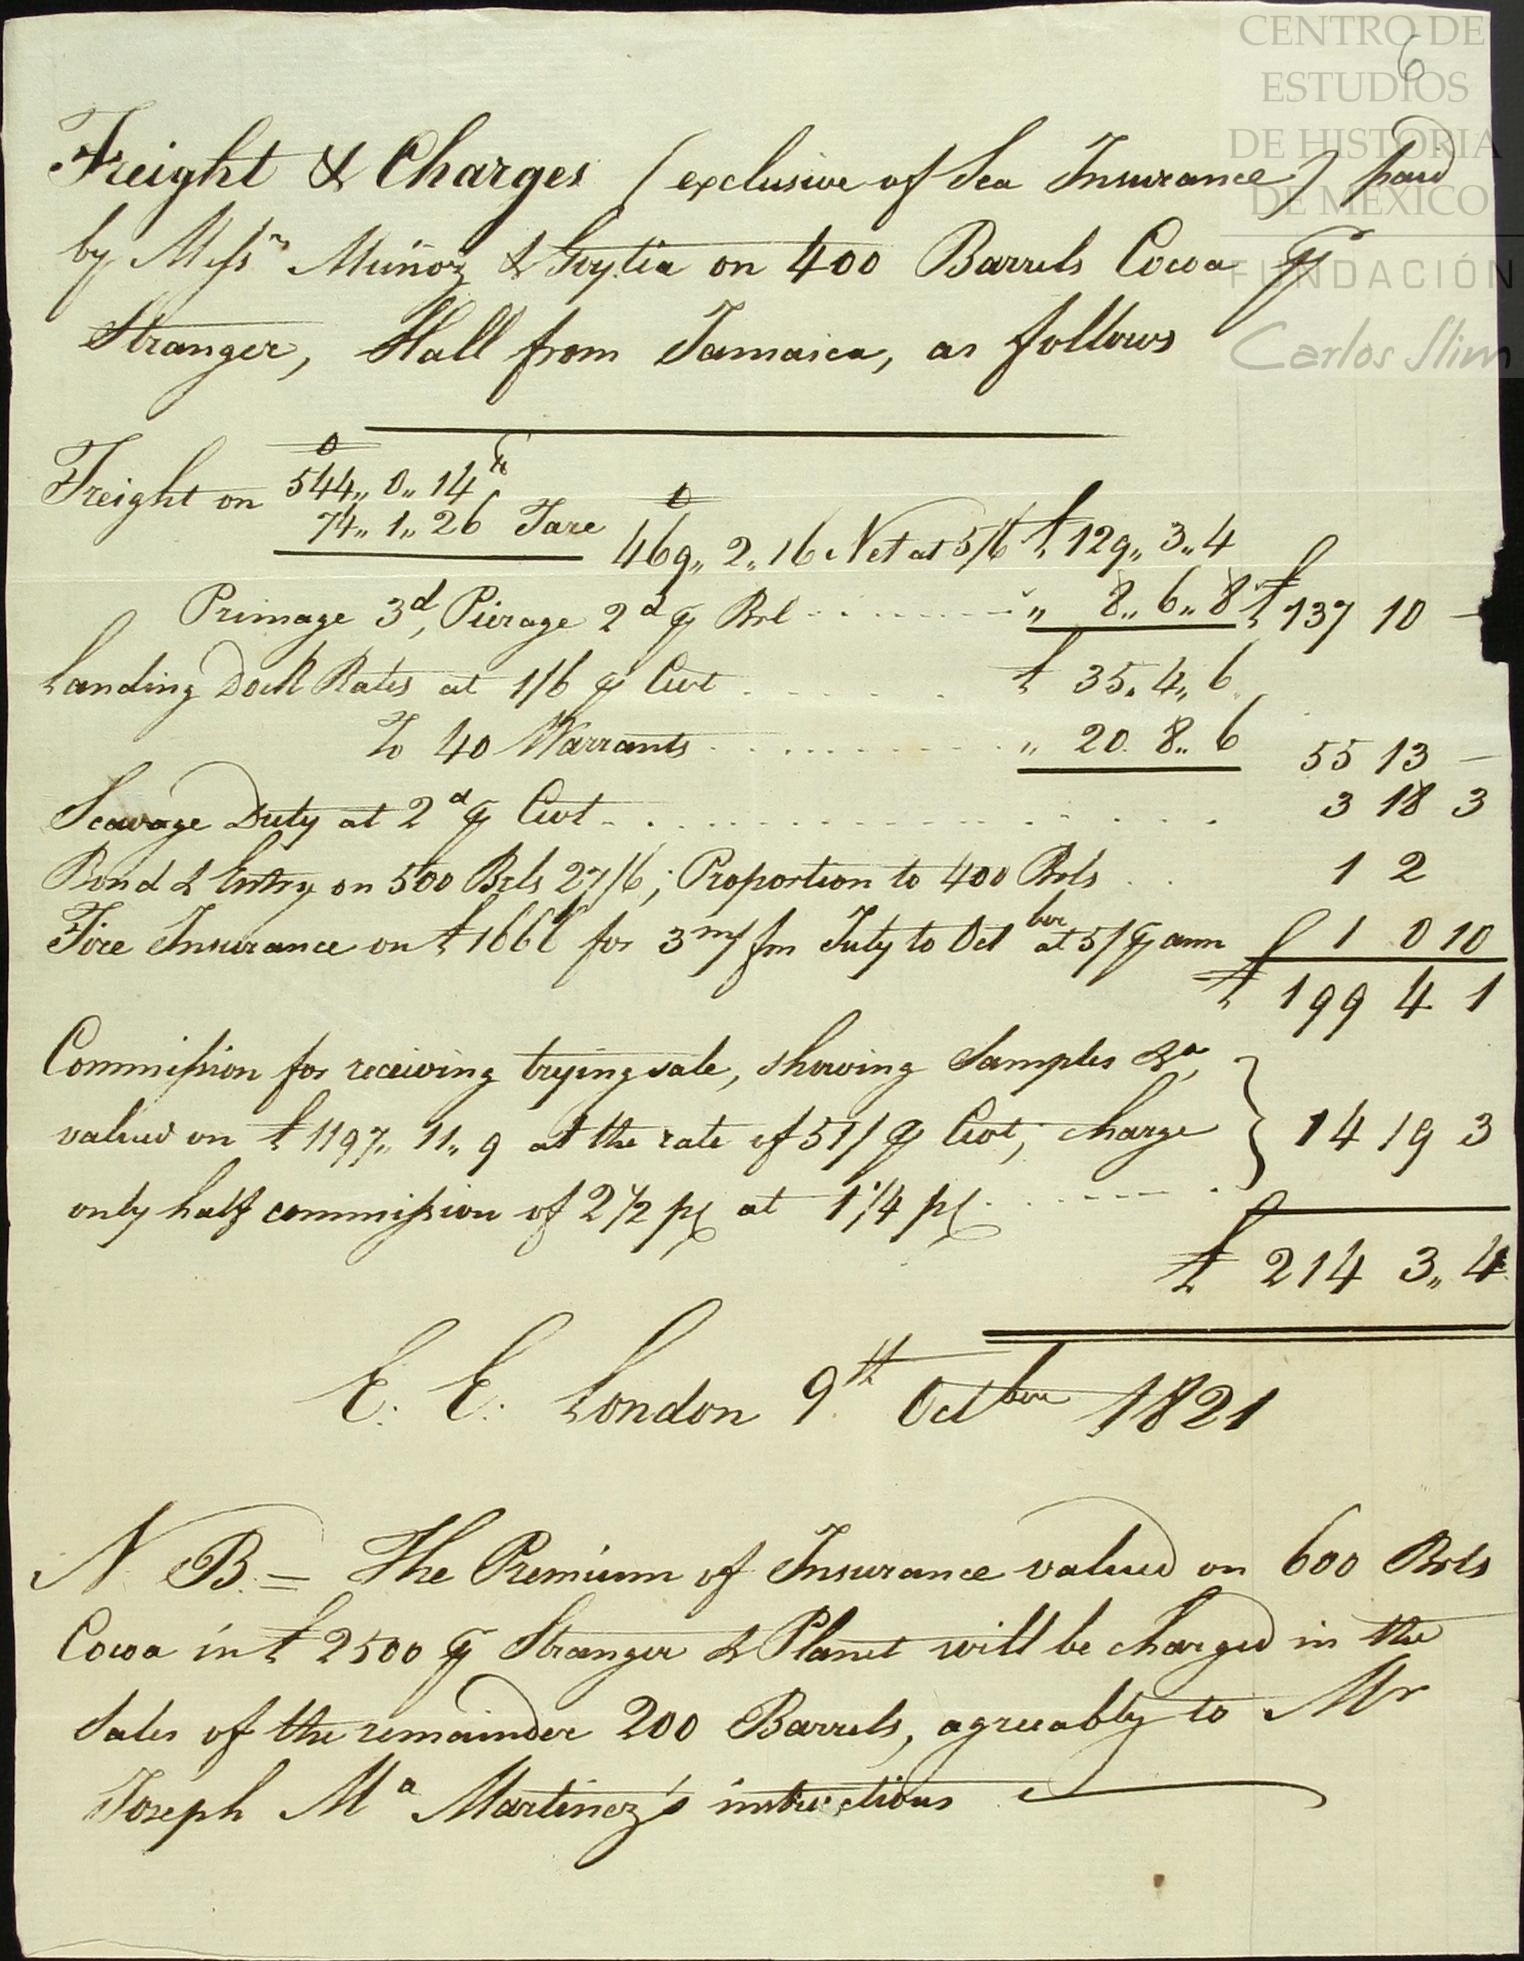 CENTRO DE
ESTUDIOS
DE HISTORIA
DE MÉXICO
FUNDACIÓN
Carlos Slim
6
Freight & Charges (exclusive of Sea Insurance) paid
by Messrs Muñoz & Goytia on 400 Barrels Cocoa ⅌
Stranger, Hall from Jamaica, as follows
Freight on 544,, 0,, 14 lb
74,, 1,, 26 Tare 469,, 2,, 16 Net at 5/6 £ 129,, 3,, 4
Primage 3d, Pierage 2d ⅌ Brl ,, 8,, 6,, 8 £ 137 10 —
Landing Dock Rates at 1/6 ⅌ Cwt £ 35,, 4,, 6
To 40 Warrants ,, 20. 8,, 6 55 13 —
Scavage Duty at 2d ⅌ Cwt 3 18 3
Bond & Entry on 500 Brls 27/6; Proportion to 400 Brls 1 2
Fire Insurance on £1666 for 3 m/ fm July to Octber at 5/ ⅌ ann 1 0 10
£ 199 4 1
Commission for receiving trying sale, showing Samples &a,
valued on £1197,, 11,, 9 at the rate of 51/ ⅌ Cwt; charge 14 19 3
only half commission of 2½ pC at 1¼ pC
£ 214 3,, 4
E. E. London 9th Octber 1821
N B. = The Premium of Insurance valued on 600 Brls
Cocoa in £2500 ⅌ Stranger & Planet will be charged in the
Sales of the remainder 200 Barrels, agreeably to Mr
Joseph Ma Martinez's instructions